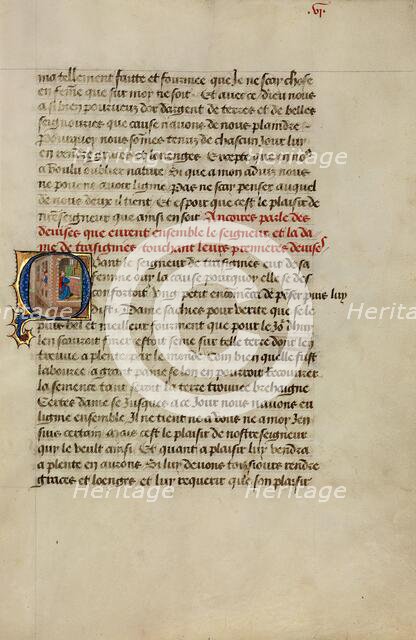 .vj.
ma tellement faitte et fourmee que Je ne scay chose
en femme que sur moy ne soit. Et avec ce dieu nous
a si bien pourveuz dor dargent de terres et de belles
seignouries que cause navons de nous plaindre.
Pourquoy nous sommes tenuz de chascun Jour luy
en rendre graces et loenges. Excepte que en no9
a voulu oublier nature. Si que a mon advis nous
ne povons avoir ligne. Pas ne scay penser auquel
de nous deux il tient. Et espoir que cest le plaisir de
nostre seigneur que ainsi en soit. Ancores parle des
devises que eurent ensemble le seigneur et la da
me de trasignies touchant leurs premieres devises
Quant le seigneur de trasignies eut de sa
femme ouy la cause pourquoy elle se des
confortoit Ung petit entommeca de penser puis luy
dist. Dame sachies pour verite que se le
plus bel et meilleur fourment que pour le Jo9 dhuy
len scauroit finer estoit seme sur telle terre dont len
treuve a plente par le monde. Combien quelle fust
labouree a grant peine se lon en pourroit recouvrer
la semence tant seroit la terre trouvee brehaigne
Certes dame se Jusques a ce Jour nous navons eu
ligne ensemble Il ne tient ne a vous ne a moy Jen
suis certain mais cest le plaisir de nostre seigneur
quy le veult ainsi. Et quant a plaisir luy vendra
a plente en aurons. Si luy devons tousjours rendre
graces et loenges et luy requerir que son plaisir
Heritage
Heritage
Heritage
Heritage
Heritage
Heritage
Heritage